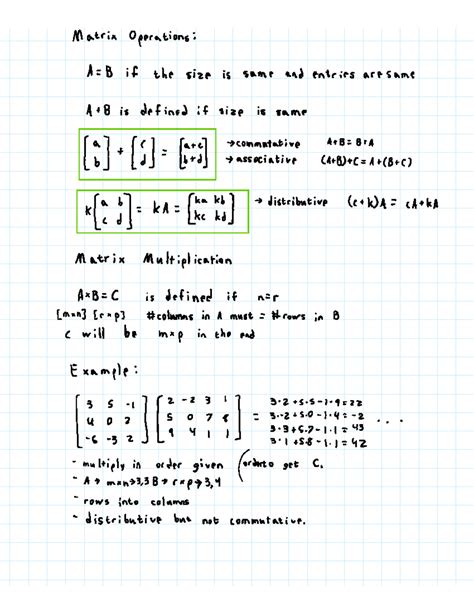 Matrix Operations:
A=B if the size is same and entries are same
A+B is defined if size is same
[a b] + [c d] = [a+c b+d] →commutative A+B=B+A
→associative (A+B)+C=A+(B+C)
k[a b c d] = kA = [ka kb kc kd] → distributive (c+k)A = cA+kA
Matrix Multiplication
A×B=C is defined if n=r
[m×n] [r×p] #columns in A must = #rows in B
C will be m×p in the end
Example:
[3 5 -1] [2 -2 3 1] 3·2+5·5-1·9=22
[4 0 2] [5 0 7 8] = 3·-2+5·0-1·4=-2 ...
[-6 -3 2] [9 4 1 1] 3·3+5·7-1·1=43
3·1+5·8-1·1=42
- multiply in order given (order to get C.
- A→ m×n→3,3 B→ r×p→3,4
- rows into columns
- distributive but not commutative.